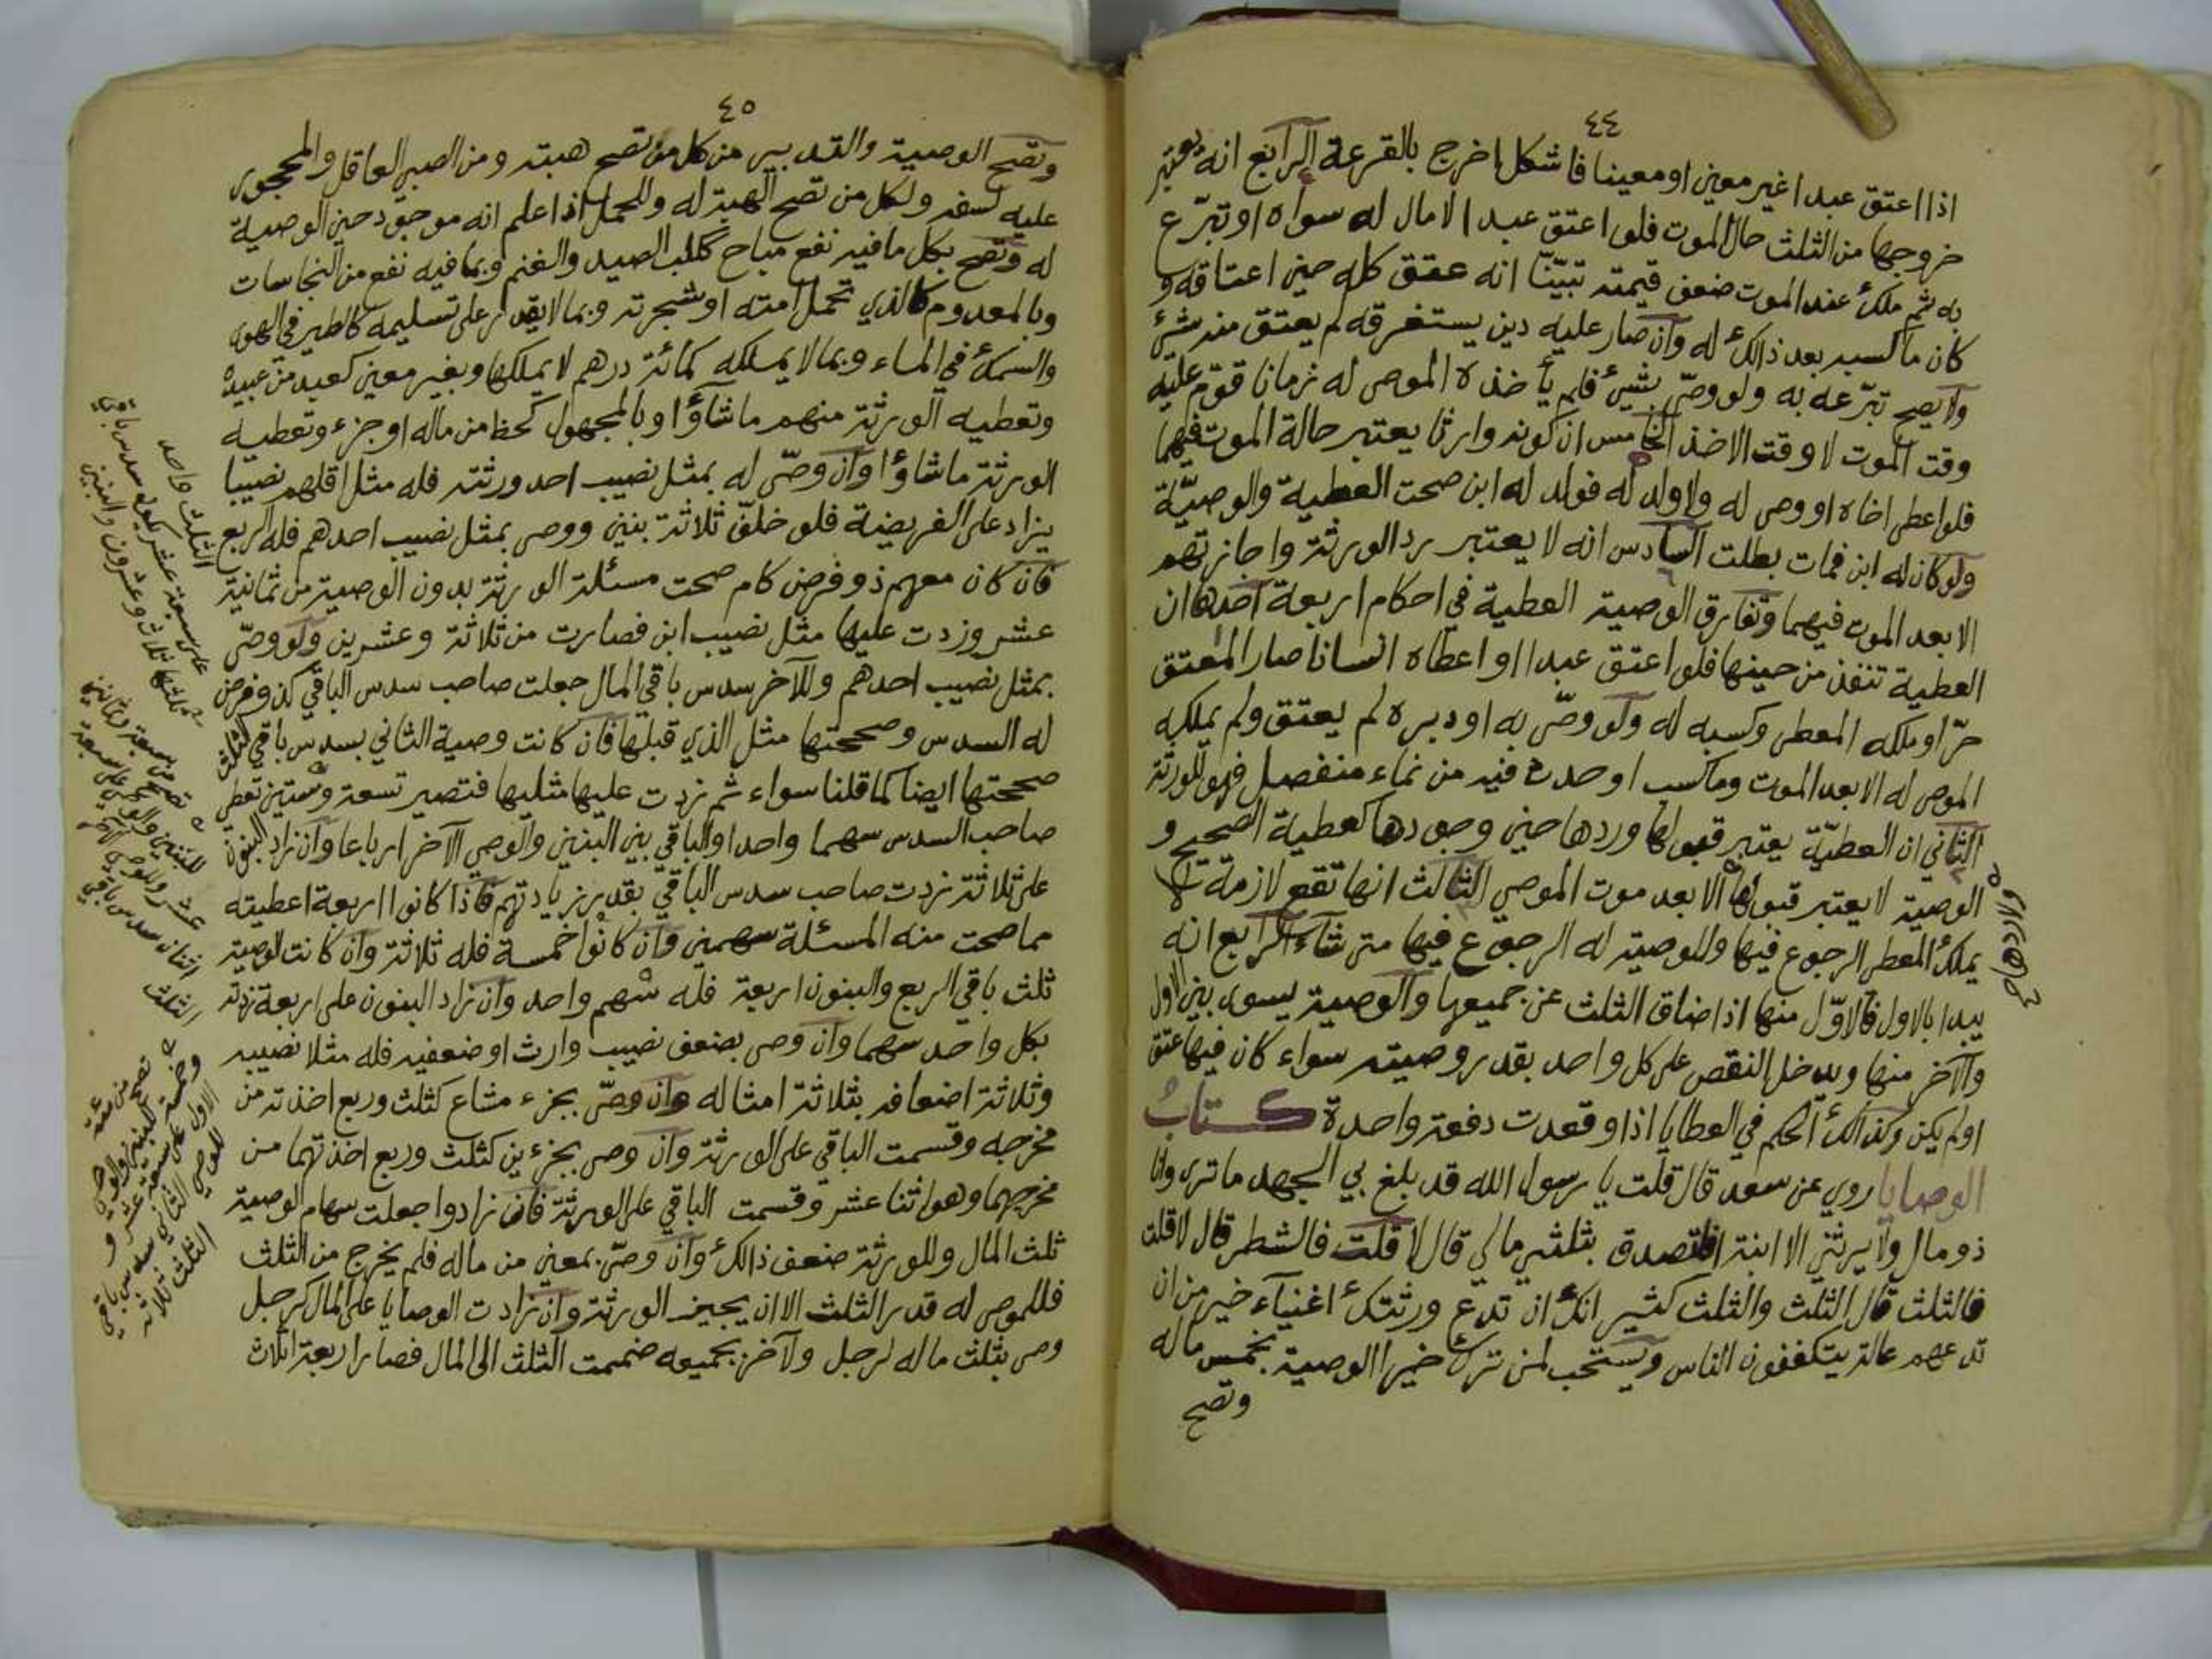 ٤٤
اذا اعتق عبدا غير معين او معينا فاشكل اخرج بالقرعة الرابع انه يعتبر
خروجها من الثلث حال الموت فلو اعتق عبدا لا مال له سواه او تبرّع
به ثم ملك عند الموت ضعف قيمته تبيّنّا انه عتق كله حين اعتاقه و
كان ماكسبه بعد ذالك له وان صار عليه دين يستغرقه لم يعتق منه شئ
ولا يصح تبرّعه به ولو وصّى بشيئ فلم يأخذه الموصى له زمانا قوّم عليه
وقت الموت لا وقت الاخذ الخامس ان كونه وارثا يعتبر حالة الموت فيهما
فلو اعطى اخاه او وصى له ولا ولد له فولد له ابن صحت العطية والوصيّة
ولو كان له ابن فمات بطلت السادس انه لا يعتبر رد الورثة واجازتهم
الا بعد الموت فيهما وتفارق الوصية العطية في احكام اربعة احدها ان
العطية تنفذ من حينها فلو اعتق عبدا او اعطاه انسانا صار المعتق
حرّا وملكه المعطى وكسبه له ولو وصّى به او دبره لم يعتق ولم يملكه
الموصى له الا بعد الموت وما كسب او حدث فيه من نماء منفصل فهو للورثة
الثاني ان العطيّة يعتبر قبولها وردها حين وجودها كعطية الصحيح و
الوصية لا يعتبر قبولها الا بعد موت الموصي الثالث انها تقع لازمة لا
يملك المعطى الرجوع فيها والوصية له الرجوع فيها متى شاء الرابع انه
يبدا بالاول فالاوّل منها اذا ضاق الثلث عن جميعها والوصية يسوى بين الاول
والآخر منها ويدخل النقص على كل واحد بقدر وصيته سواء كان فيها عتق
او لم يكن وكذالك الحكم في العطايا اذا وقعت دفعة واحدة كتابُ
الوصايا روي عن سعد قال قلت يا رسول الله قد بلغ بي الجهد ما ترى وانا
ذو مال ولا يرثني الا ابنة افاتصدق بثلثي مالي قال لا قلت فالشطر قال لا قلت
فالثلث قال الثلث والثلث كثير انك ان تدع ورثتك اغنياء خير من ان
تدعهم عالة يتكففون الناس ويستحب لمن ترك خيرا الوصية بخمس ماله
وتصح
٤٥
وتصح الوصية والتدبير من كل من تصح هبته ومن الصبي العاقل والمحجور
عليه لسفه ولكل من تصح الهبة له وللحمل اذا علم انه موجود حين الوصية
له وتصح بكل ما فيه نفع مباح ككلب الصيد والغنم وبما فيه نفع من النجاسات
وبالمعدوم كالذي تحمل امته او شجرته وبما لا يقدر على تسليمه كالطير في الهوى
والسمك في الماء وبما لا يملكه كمائة درهم لا يملكها وبغير معين كعبد من عبيده
وتعطيه الورثة منهم ما شاؤا وبالمجهول كحظ من ماله او جزء وتعطيه
الورثة ما شاؤا وان وصّى له بمثل نصيب احد ورثته فله مثل اقلهم نصيبا
يزاد على الفريضة فلو خلّف ثلاثة بنين ووصى بمثل نصيب احدهم فله الربع
فان كان معهم ذو فرض كام صحت مسئلة الورثة بدون الوصية من ثمانية
عشر وزدت عليها مثل نصيب ابن فصارت من ثلاثة وعشرين ولو وصّى
بمثل نصيب احدهم وللآخر سدس باقي المال جعلت صاحب سدس الباقي كذو فرض
له السدس وصححتها مثل الذي قبلها فان كانت وصية الثاني بسدس باقي الثلث
صححتها ايضا كما قلنا سواء ثم زدت عليها مثليها فتصير تسعة وستين تعطي
صاحب السدس سهما واحدا والباقي بين البنين والوصي الآخر ارباعا وان زاد البنون
على ثلاثة زدت صاحب سدس الباقي بقدر زيادتهم فاذا كانوا اربعة اعطيته
مما صحت منه المسئلة سهمين وان كانوا خمسة فله ثلاثة وان كانت الوصية
ثلث باقي الربع والبنون اربعة فله سهم واحد وان زاد البنون على اربعة زدته
بكل واحد سهما وان وصى بضعف نصيب وارث او ضعفيه فله مثلا نصيبه
وثلاثة اضعافه بثلاثة امثاله وان وصّى بجزء مشاع كثلث وربع اخذته من
مخرجه وقسمت الباقي على الورثة وان وصى بجزءين كثلث وربع اخذتهما من
مخرجهما وهو اثنا عشر وقسمت الباقي على الورثة فان زادوا جعلت سهام الوصية
ثلث المال وللورثة ضعف ذالك وان وصّى بمعين من ماله فلم يخرج من الثلث
فللموصى له قدر الثلث الا ان يجيز الورثة وان زادت الوصايا على المال كرجل
وصى بثلث ماله لرجل ولآخر بجميعه ضممت الثلث الى المال فصار اربعة اثلاث
الثلث واحد
تصح من سبعة وثمانين
عشر وللموصى
اثنان سدس باقي
الثلث
تصح من مئة
وخمسة للبنين والوصي
الاول على سبعة عشر و
للموصى الثاني سدس باقي
الثلث ثلاثة